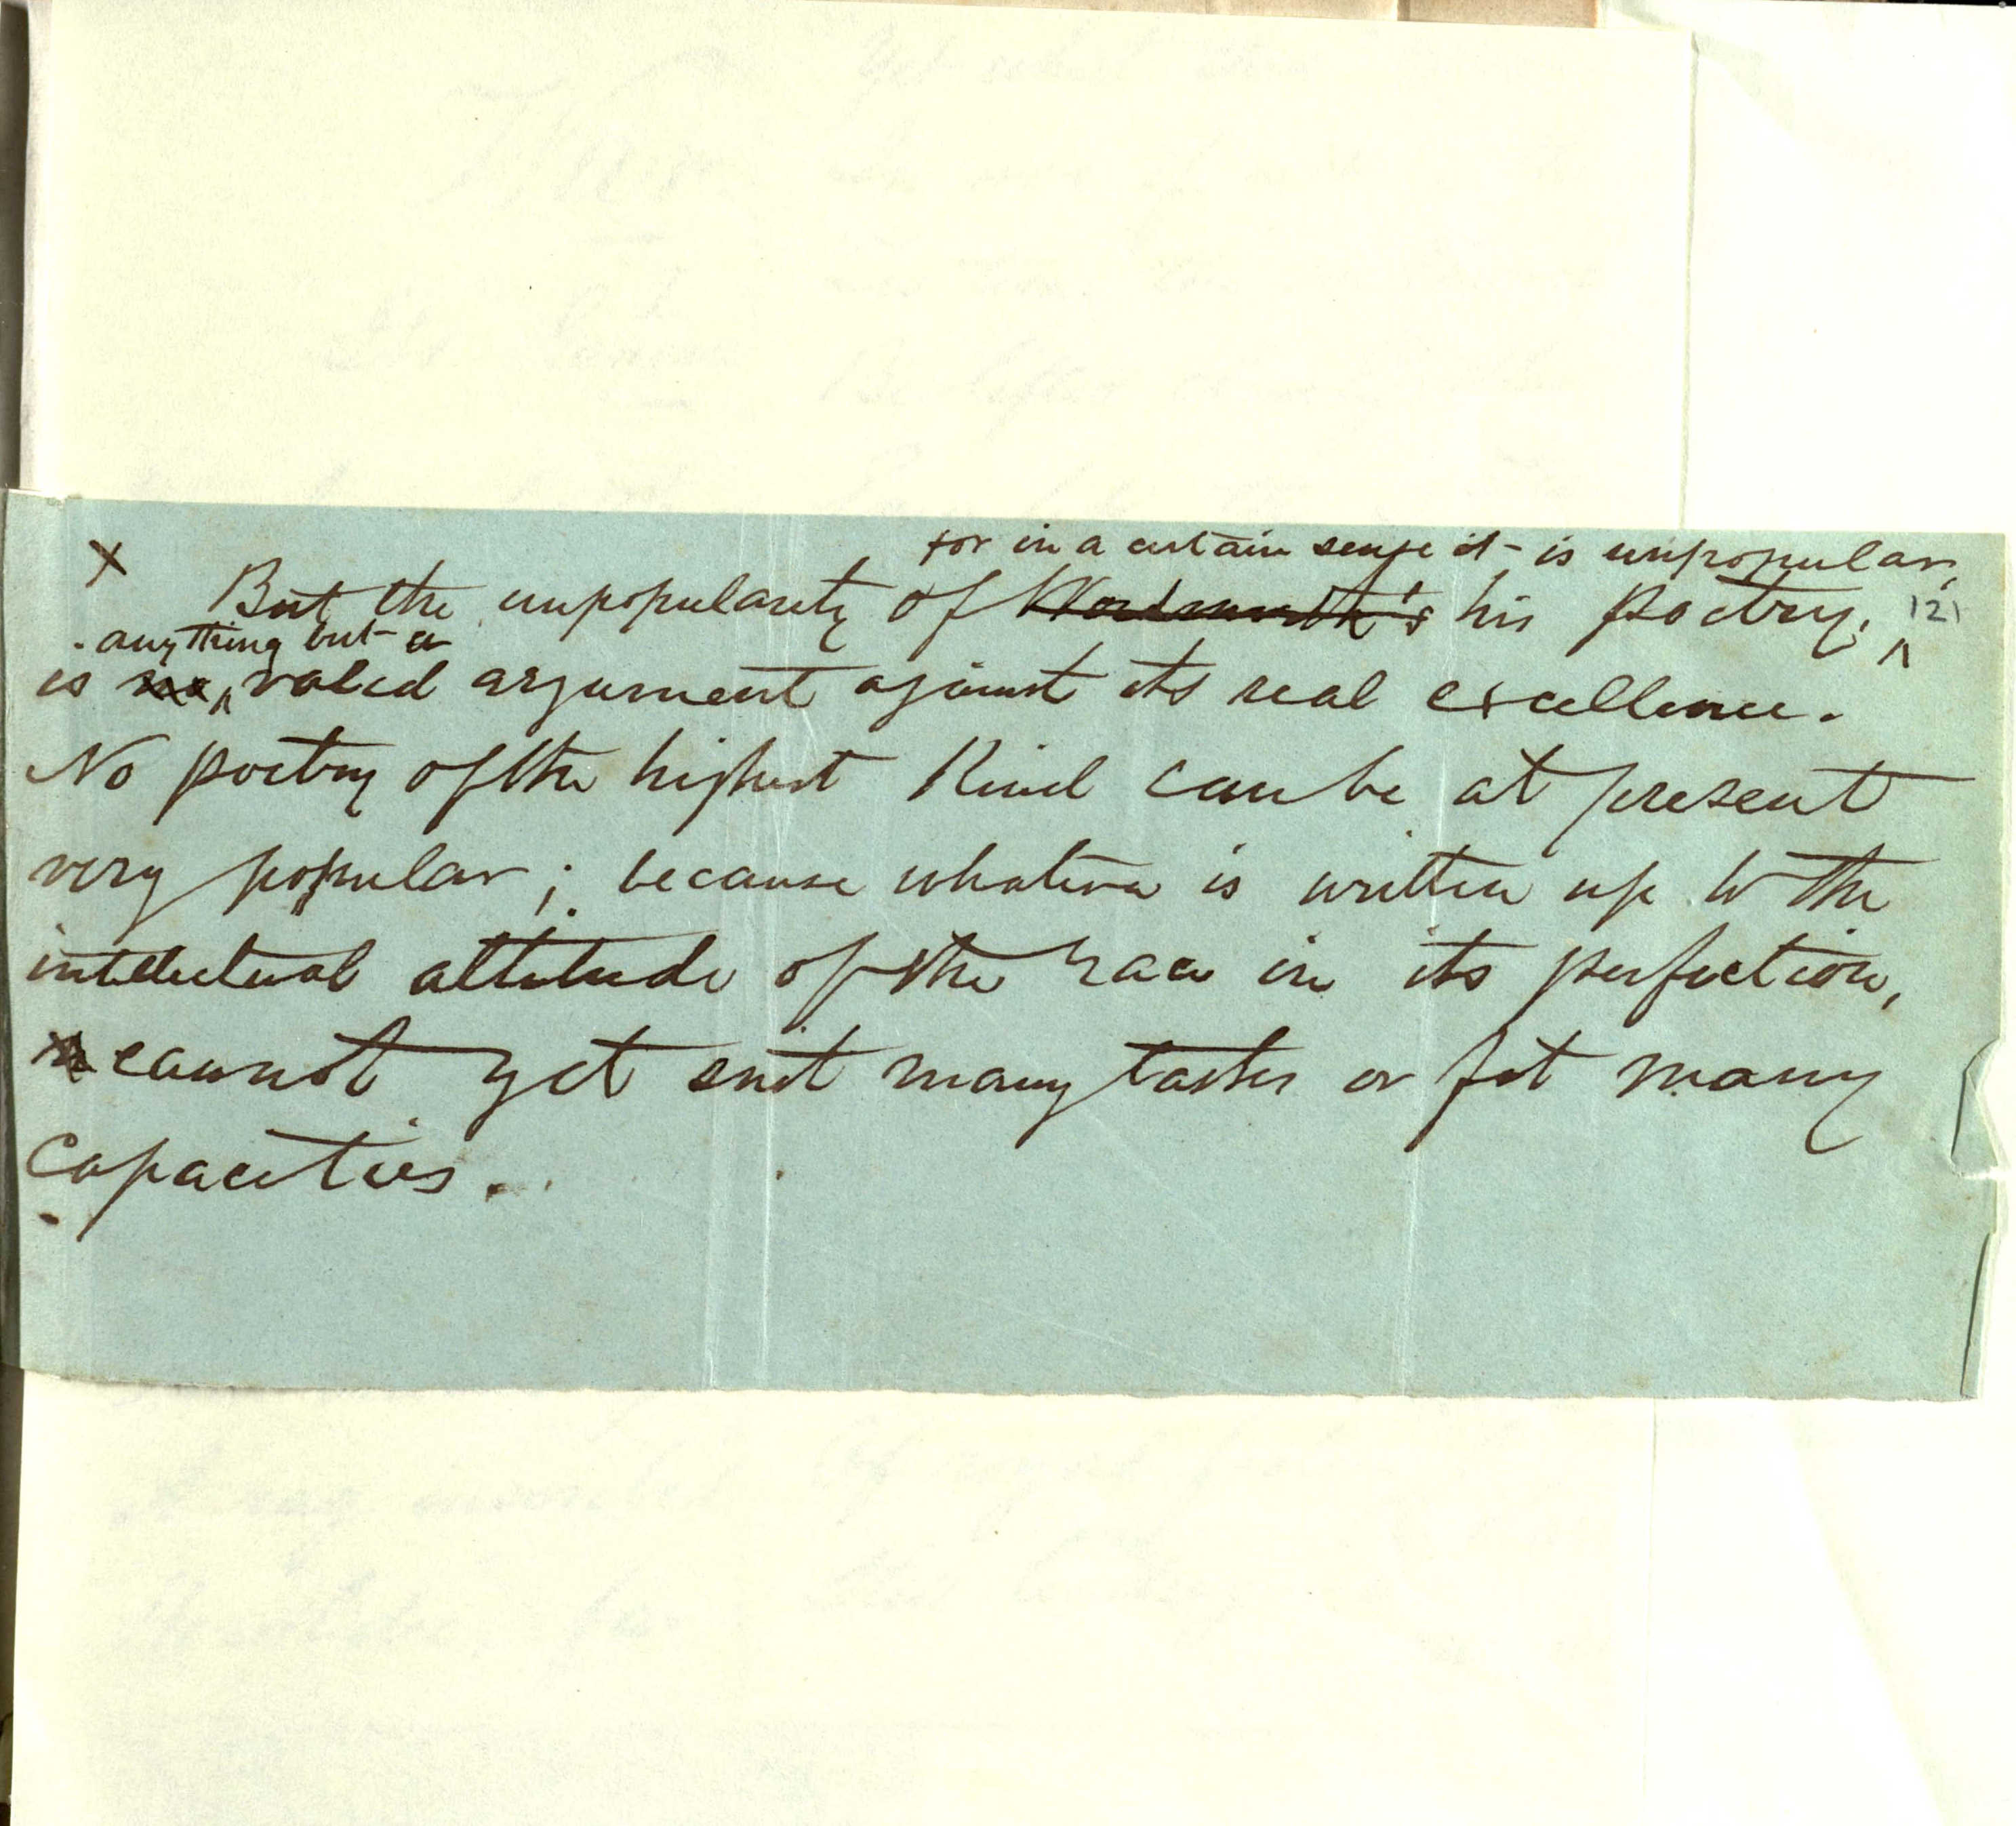 for in a certain sense it is unpopular,
X
But the unpopularity of Wordsworth's his poetry, 121
anything but a
is no valid argument against its real excellence.
No poetry of the highest kind can be at present
very popular; because whatever is written up to the
intellectual altitude of the race in its perfection,
cannot yet suit many tastes or fit many
capacities.